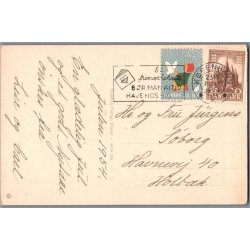 Julen 1954
En glædelig jul
og et godt Nytaar
ønskes fra
Lise og Carl
BØR MAN ALTID
HAVE HOS SIG
KØBENHAVN
Hr og Fru Jürgens
Søborg
Havnevej 40
Holbæk